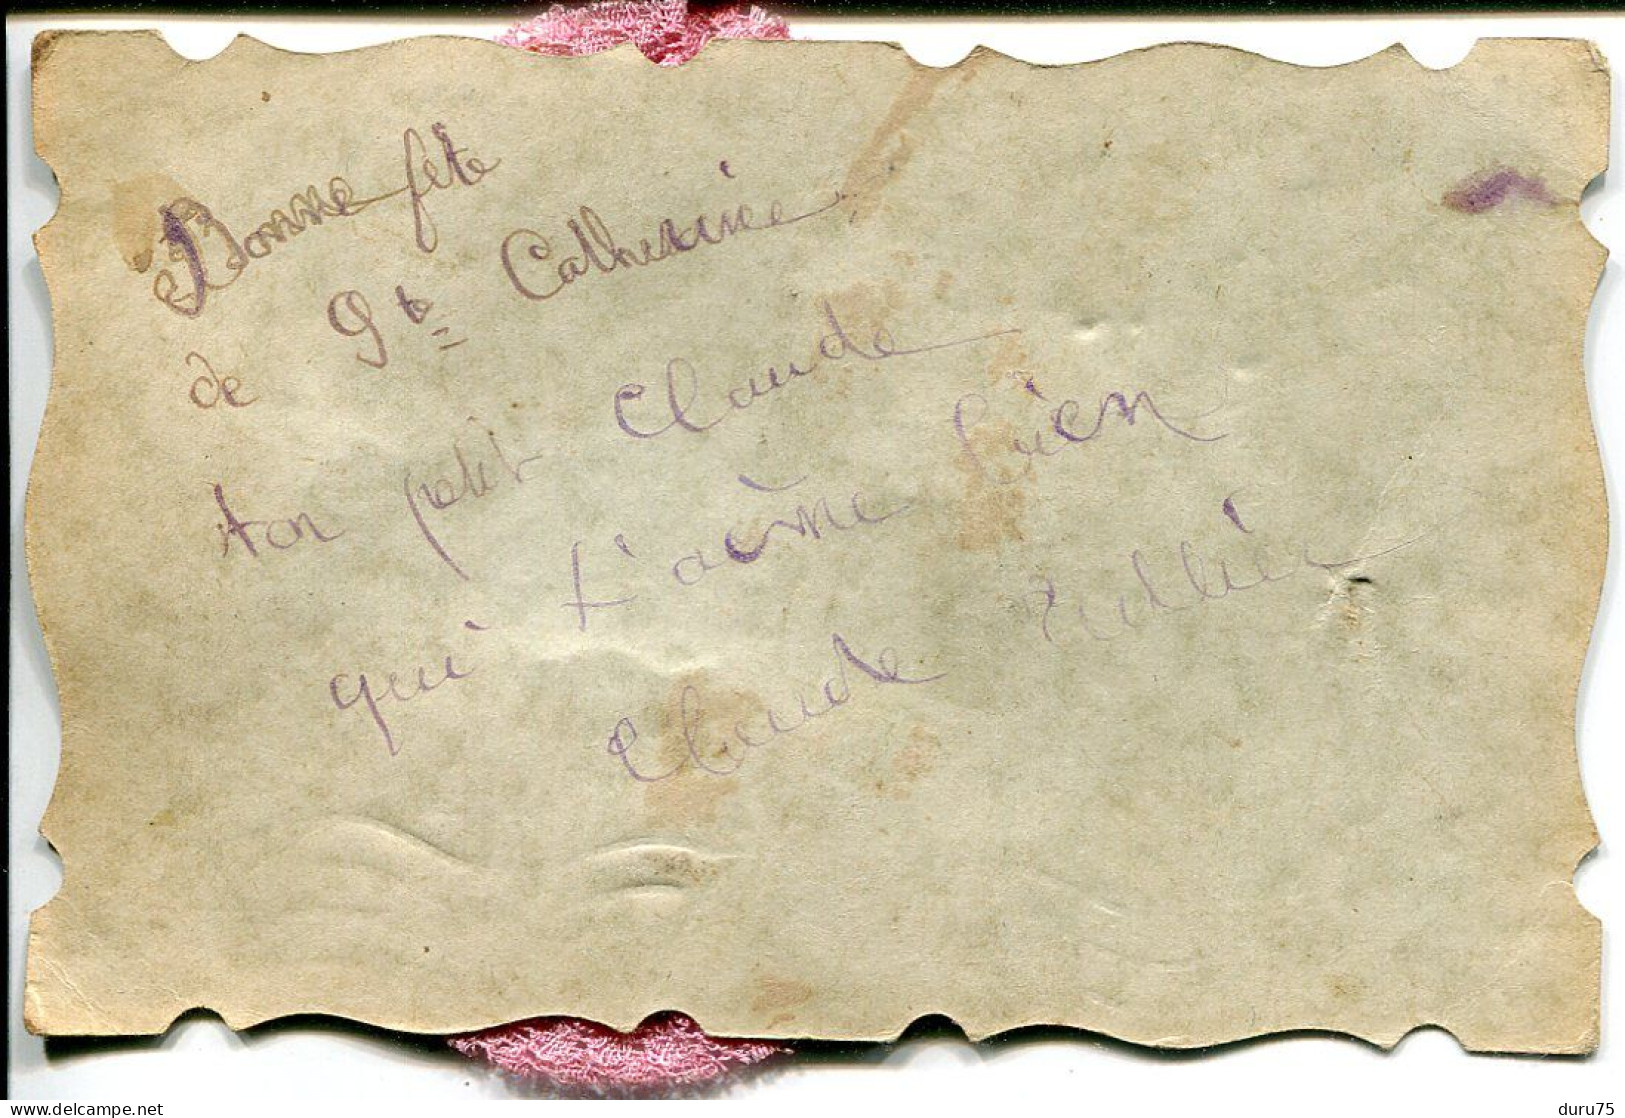 Bonne fête
de Ste Catherine
ton petit Claude
qui t'aime bien
Claude
delcampe.net
duru75